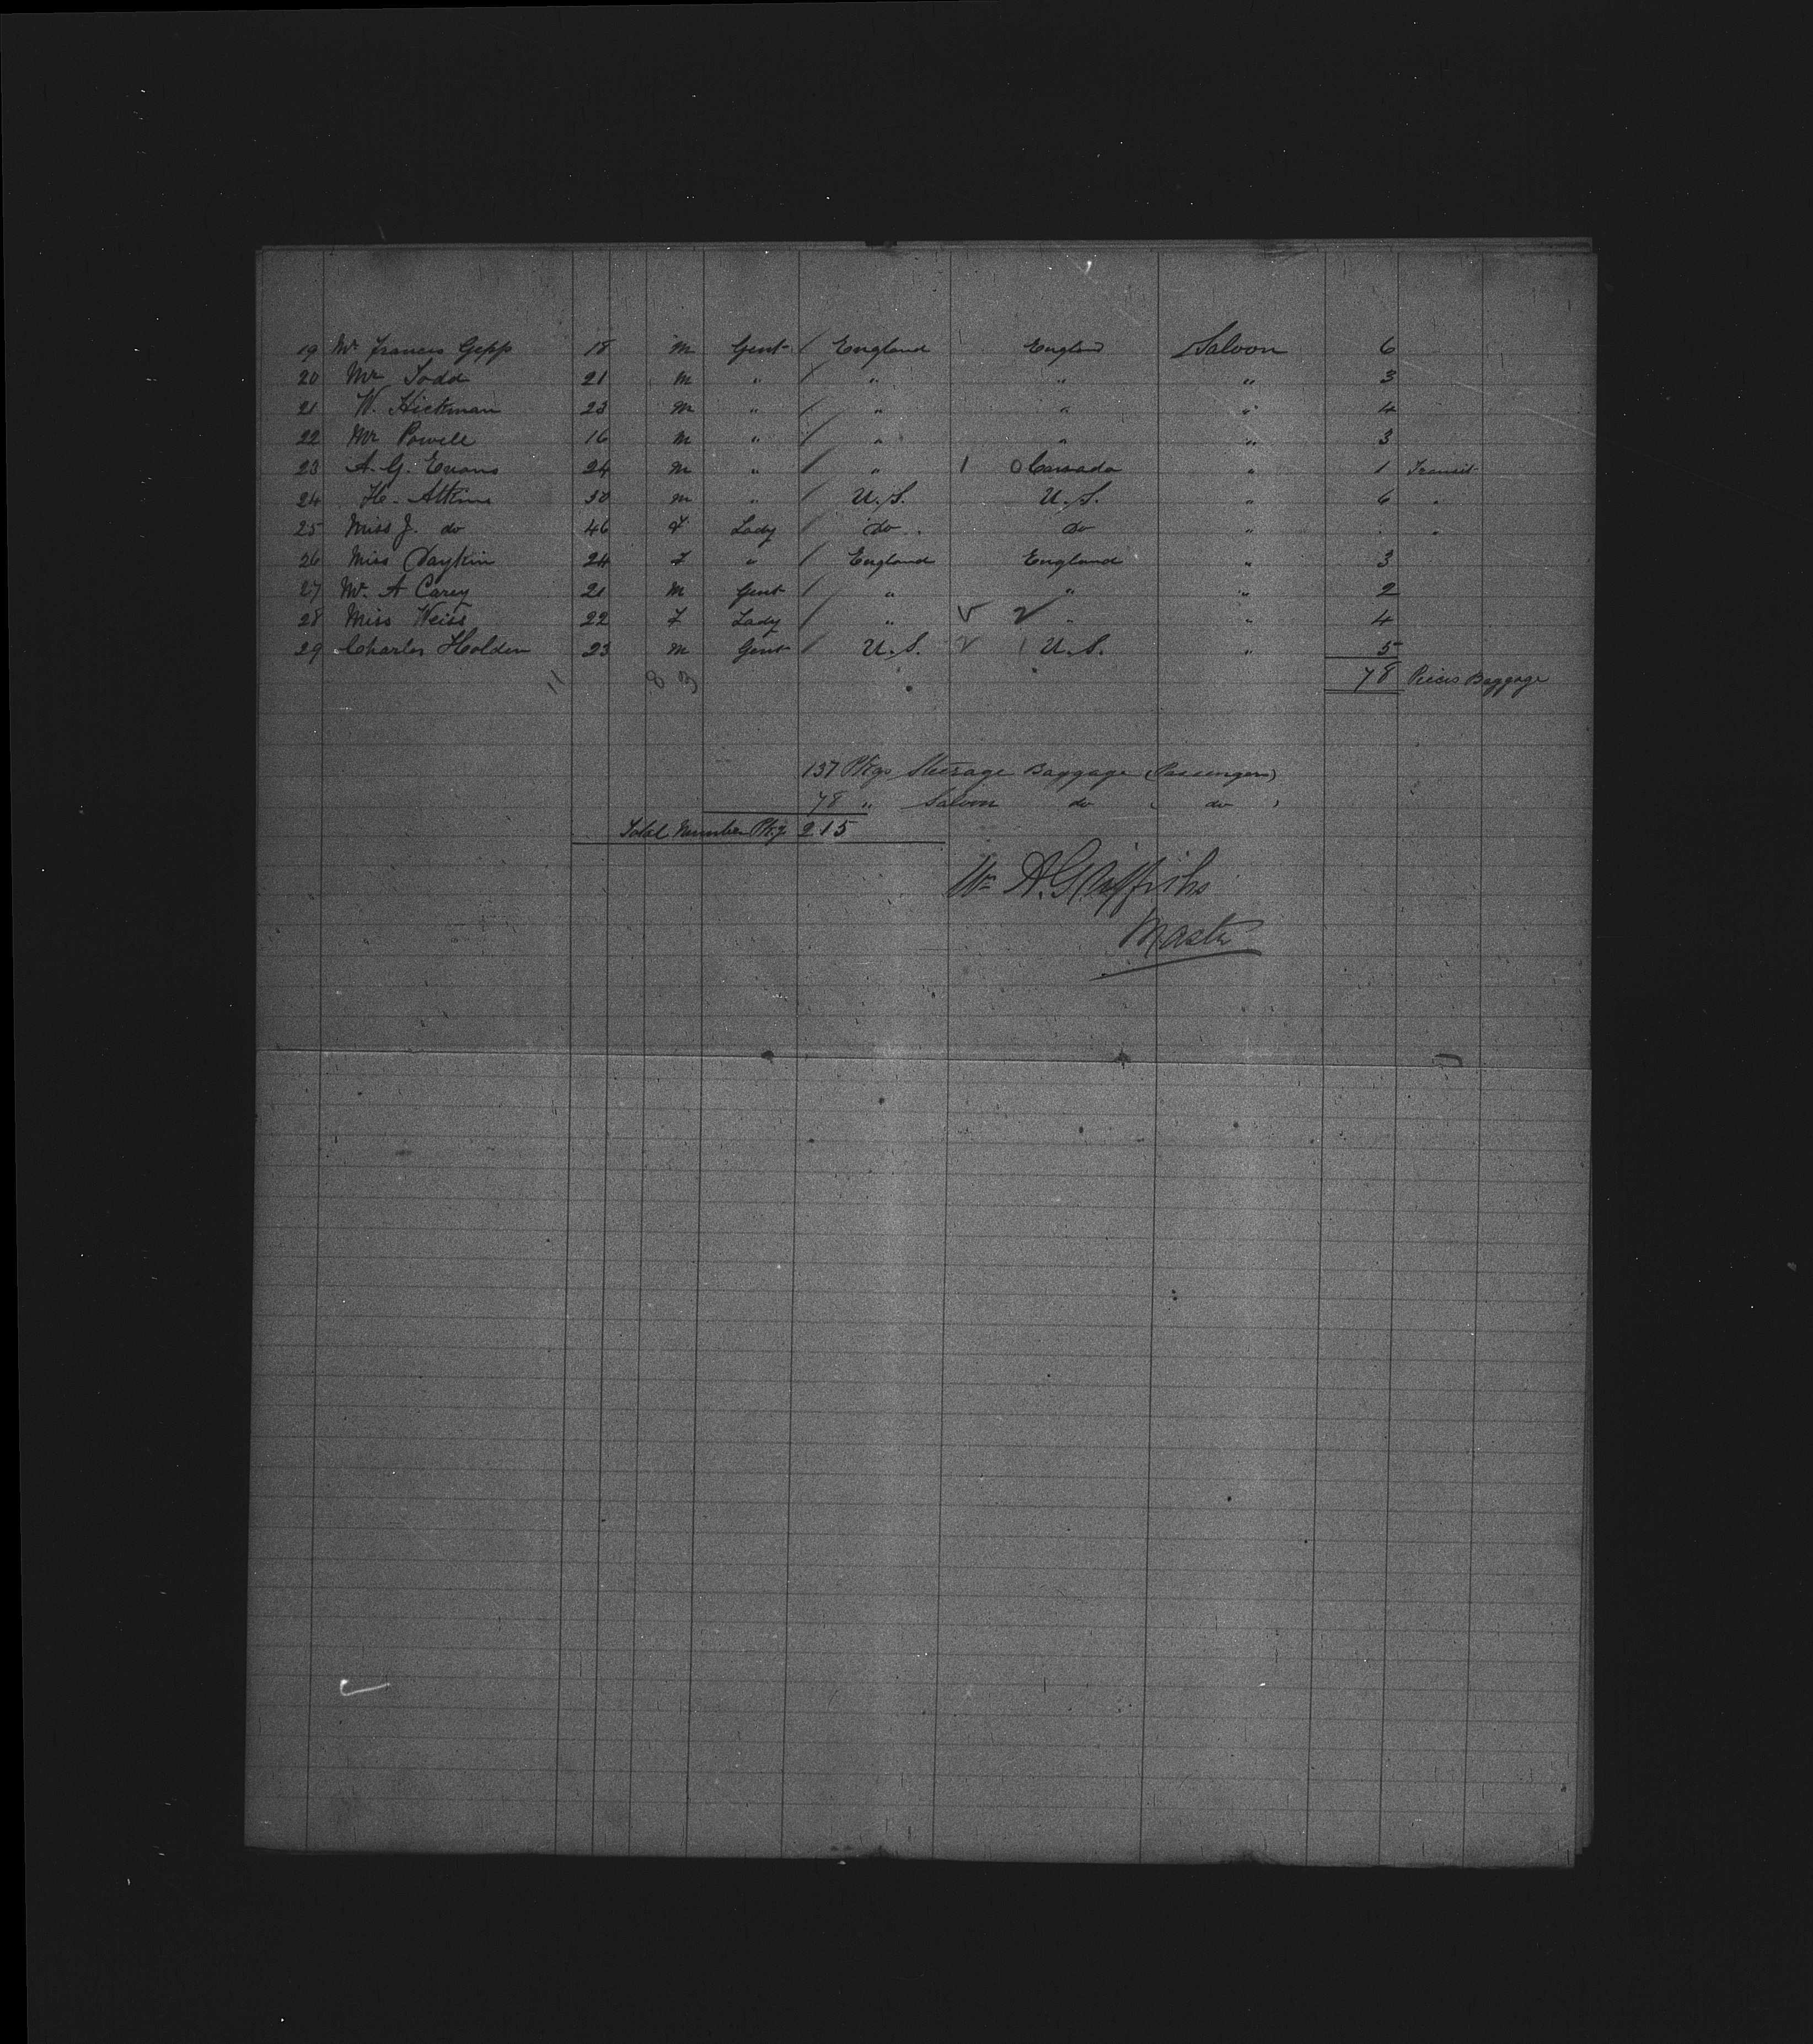 19 Mr Francis Gepp 18 M Gent / England England Saloon 6
20 Mr Todd 21 M " / " " " 3
21 W. Hickman 23 M " / " " " 4
22 Mr Powell 16 M " / " " " 3
23 A. G. Evans 24 M " / " 1 0 Canada " 1 Transit
24 H. Atkins 50 M " / U.S. U.S. " 6 "
25 Miss J. do 46 F Lady / do do " . "
26 Miss Daykin 24 F " / England England " 3
27 Mr. A Carey 21 M Gent / " " " 2
28 Miss Weiss 22 F Lady / " V V " " 4
29 Charles Holden 23 M Gent / U.S. V 1 U.S. " 5
11 8 3 78 Pieces Baggage
137 Pkgs Steerage Baggage (Passengers)
78 " Saloon do ( do )
Total Number Pkgs 215
Wm A. Griffiths
Master